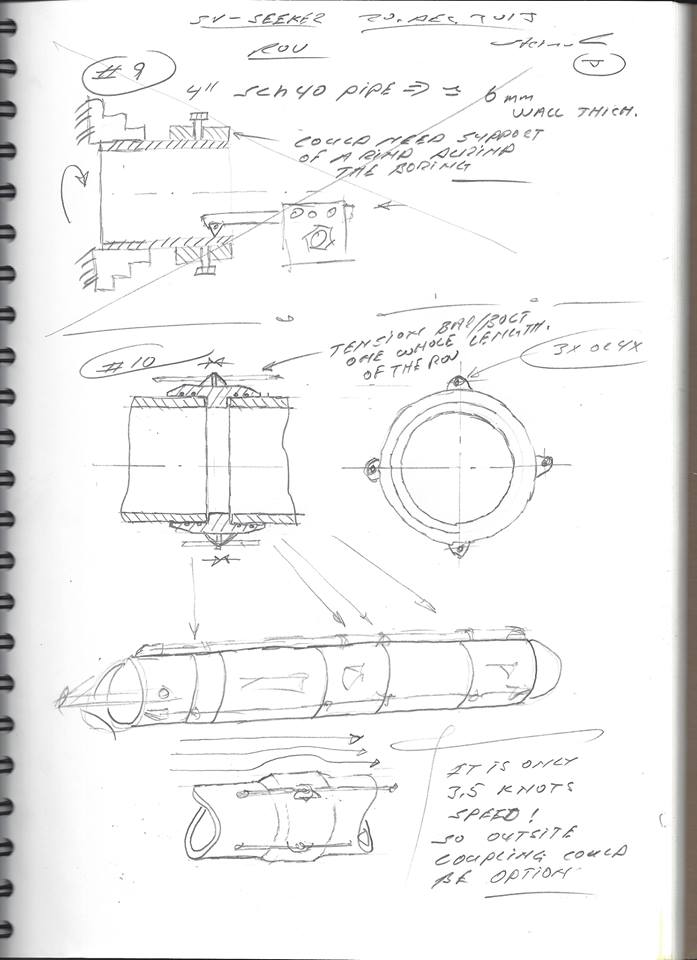 SV-SEEKER 20. DEC. 2015
ROV
#9
4" SCH 40 PIPE ⇒ ≈ 6 mm
WALL THICH.
COULD NEED SUPPORT
OF A RING DURING
THE BORING
#10
TENSION BAR/BOLT
ONE WHOLE LENGTH.
OF THE ROV
3X OR 4X
IT IS ONLY
3,5 KNOTS
SPEED!
SO OUTSITE
COUPLING COULD
BE OPTION